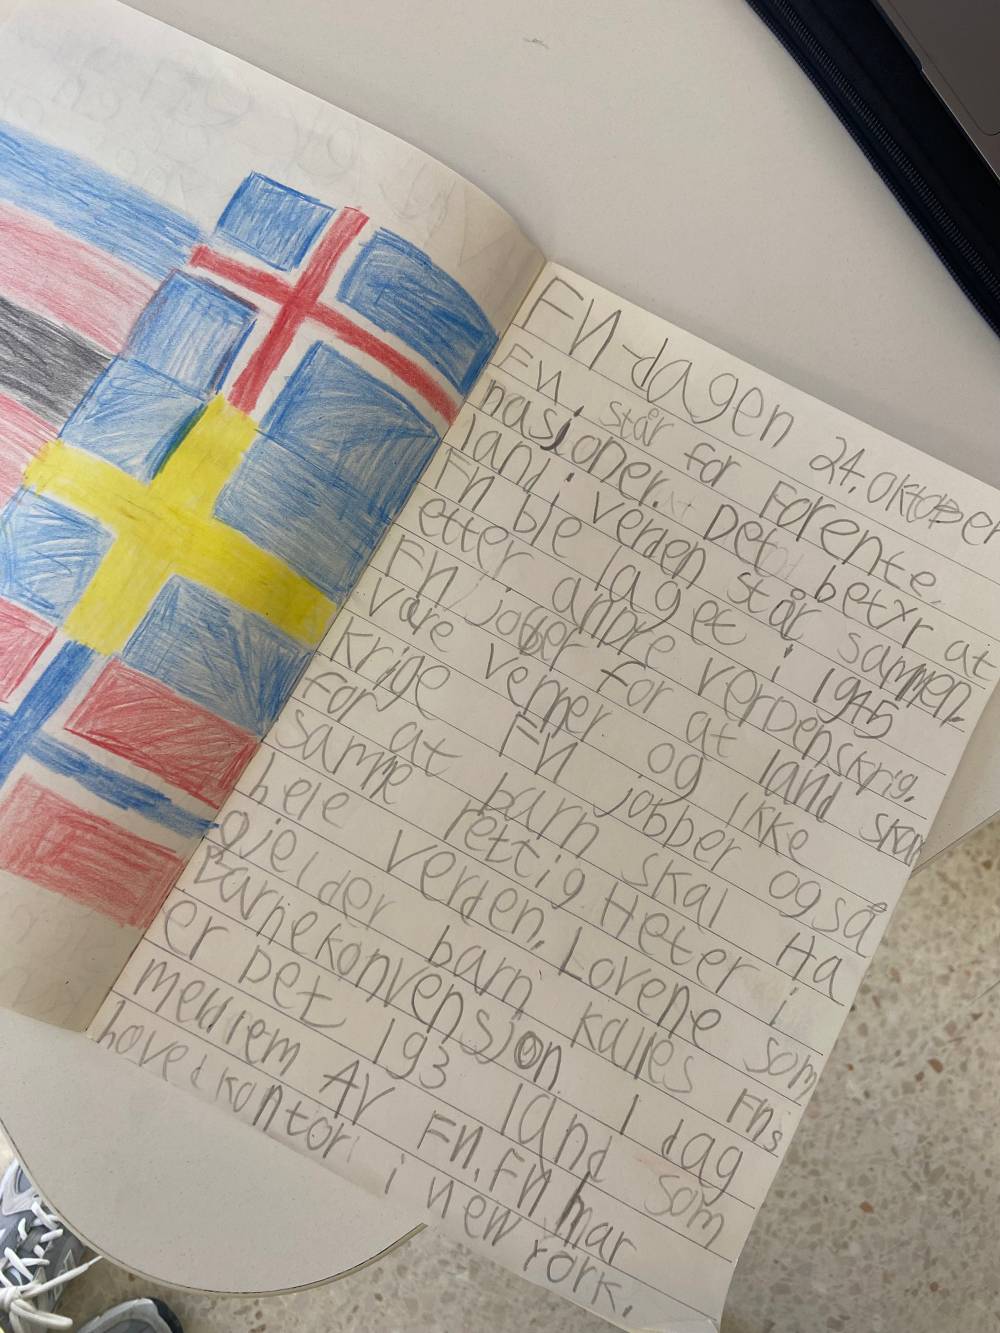 FN-dagen 24. oktober
FN står for Forente
nasjoner. Det betyr at
land i verden står sammen.
FN ble laget i 1945
etter andre verdenskrig.
FN jobber for at land skal
være venner og ikke
krige FN jobber også
for at barn skal Ha
samme rettigHeter i
hele verden. Lovene som
gjelder barn kalles FNs
Barnekonvensjon. I dag
er Det 193 land som
medlem AV FN. FN har
hovedkontor i new York.